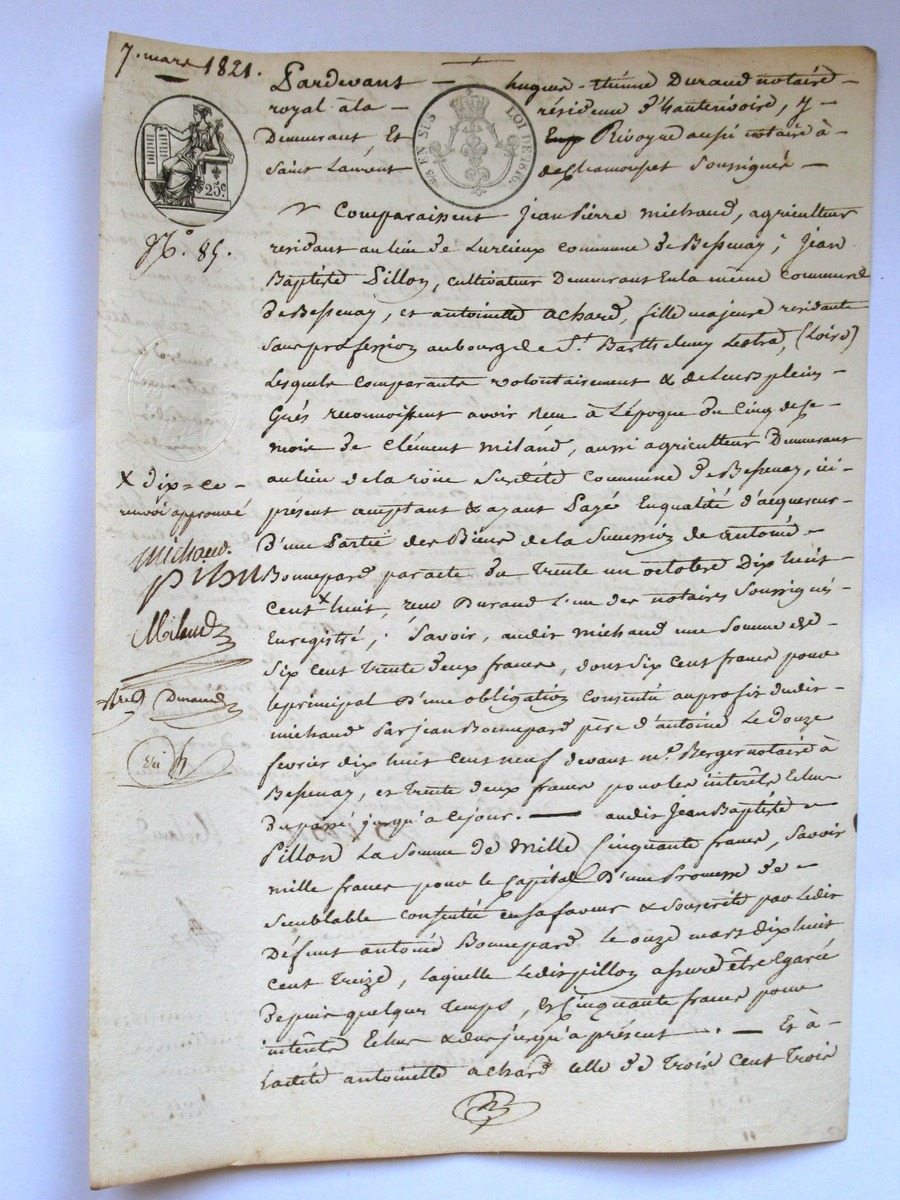 7. mars 1821.
Pardevant — hugues-étiénne Durand notaire —
royal à la — résidence d'hauterivoire, y —
Demeurant Et Rivoyre aussi notaire à —
Saint Laurent de Chamousset Soussignés —
EN SUS
LOI DE 1816.
25c.
No. 85.
Comparaissent Jean Pierre michaud, agriculteur
residant au lieu de Lurcieux commune de Bessenay; Jean
Baptiste Pillon, cultivateur Demeurant En la même commune
de Bessenay, et antoinette achard, fille majeure residante
Sans profession au bourg de St. Barthelemy Lestra, (Loire)
Lesquels comparants volontairement & de Leurs pleins —
Grés reconnoissent avoir Recu à L'époque du Cinq de ce
mois de Clément milaud, aussi agriculteur Demeurant
au lieu de la roüe Susdite Commune de Bessenay, ici —
présent acceptant & ayant Payé En qualité d'acquereur —
D'une Partie des Biens de la Succession de antoine —
Bonnepard par acte du Trente un octobre Dix huit —
Cent x huit, recu Durand L'un des notaires Soussignés —
Enregistré; Savoir, audit michaud une Somme de —
Six cent trente deux francs, dont Six Cent francs pour
le principal D'une obligation Consentie au profit dudit —
michaud Par jean Bonnepard père d'antoine Le Douze
fevrier dix huit cent neuf devant me. Berger notaire à
Bessenay, et trente deux francs pour les interêts Echus
Du passé jusqu'a ce jour. — audit Jean Baptiste —
Pillon La Somme de Mille Cinquante francs, Savoir
mille francs pour le Capital D'une Promesse de —
Semblable consentie en sa faveur & Souscrite par Ledit
Défunt antoine Bonnepard Le onze mars dix huit
cent treize, laquelle Ledit pillon assure être Egarée
Depuis quelque Temps, & Cinquante francs pour
interêts Echus & dus jusqu'a présent. — Et à —
Ladite antoinette achard celle de Trois Cent Trois
x dix = ce —
renvoi approuvé
Michaud.
pilon
Milaud
Durand